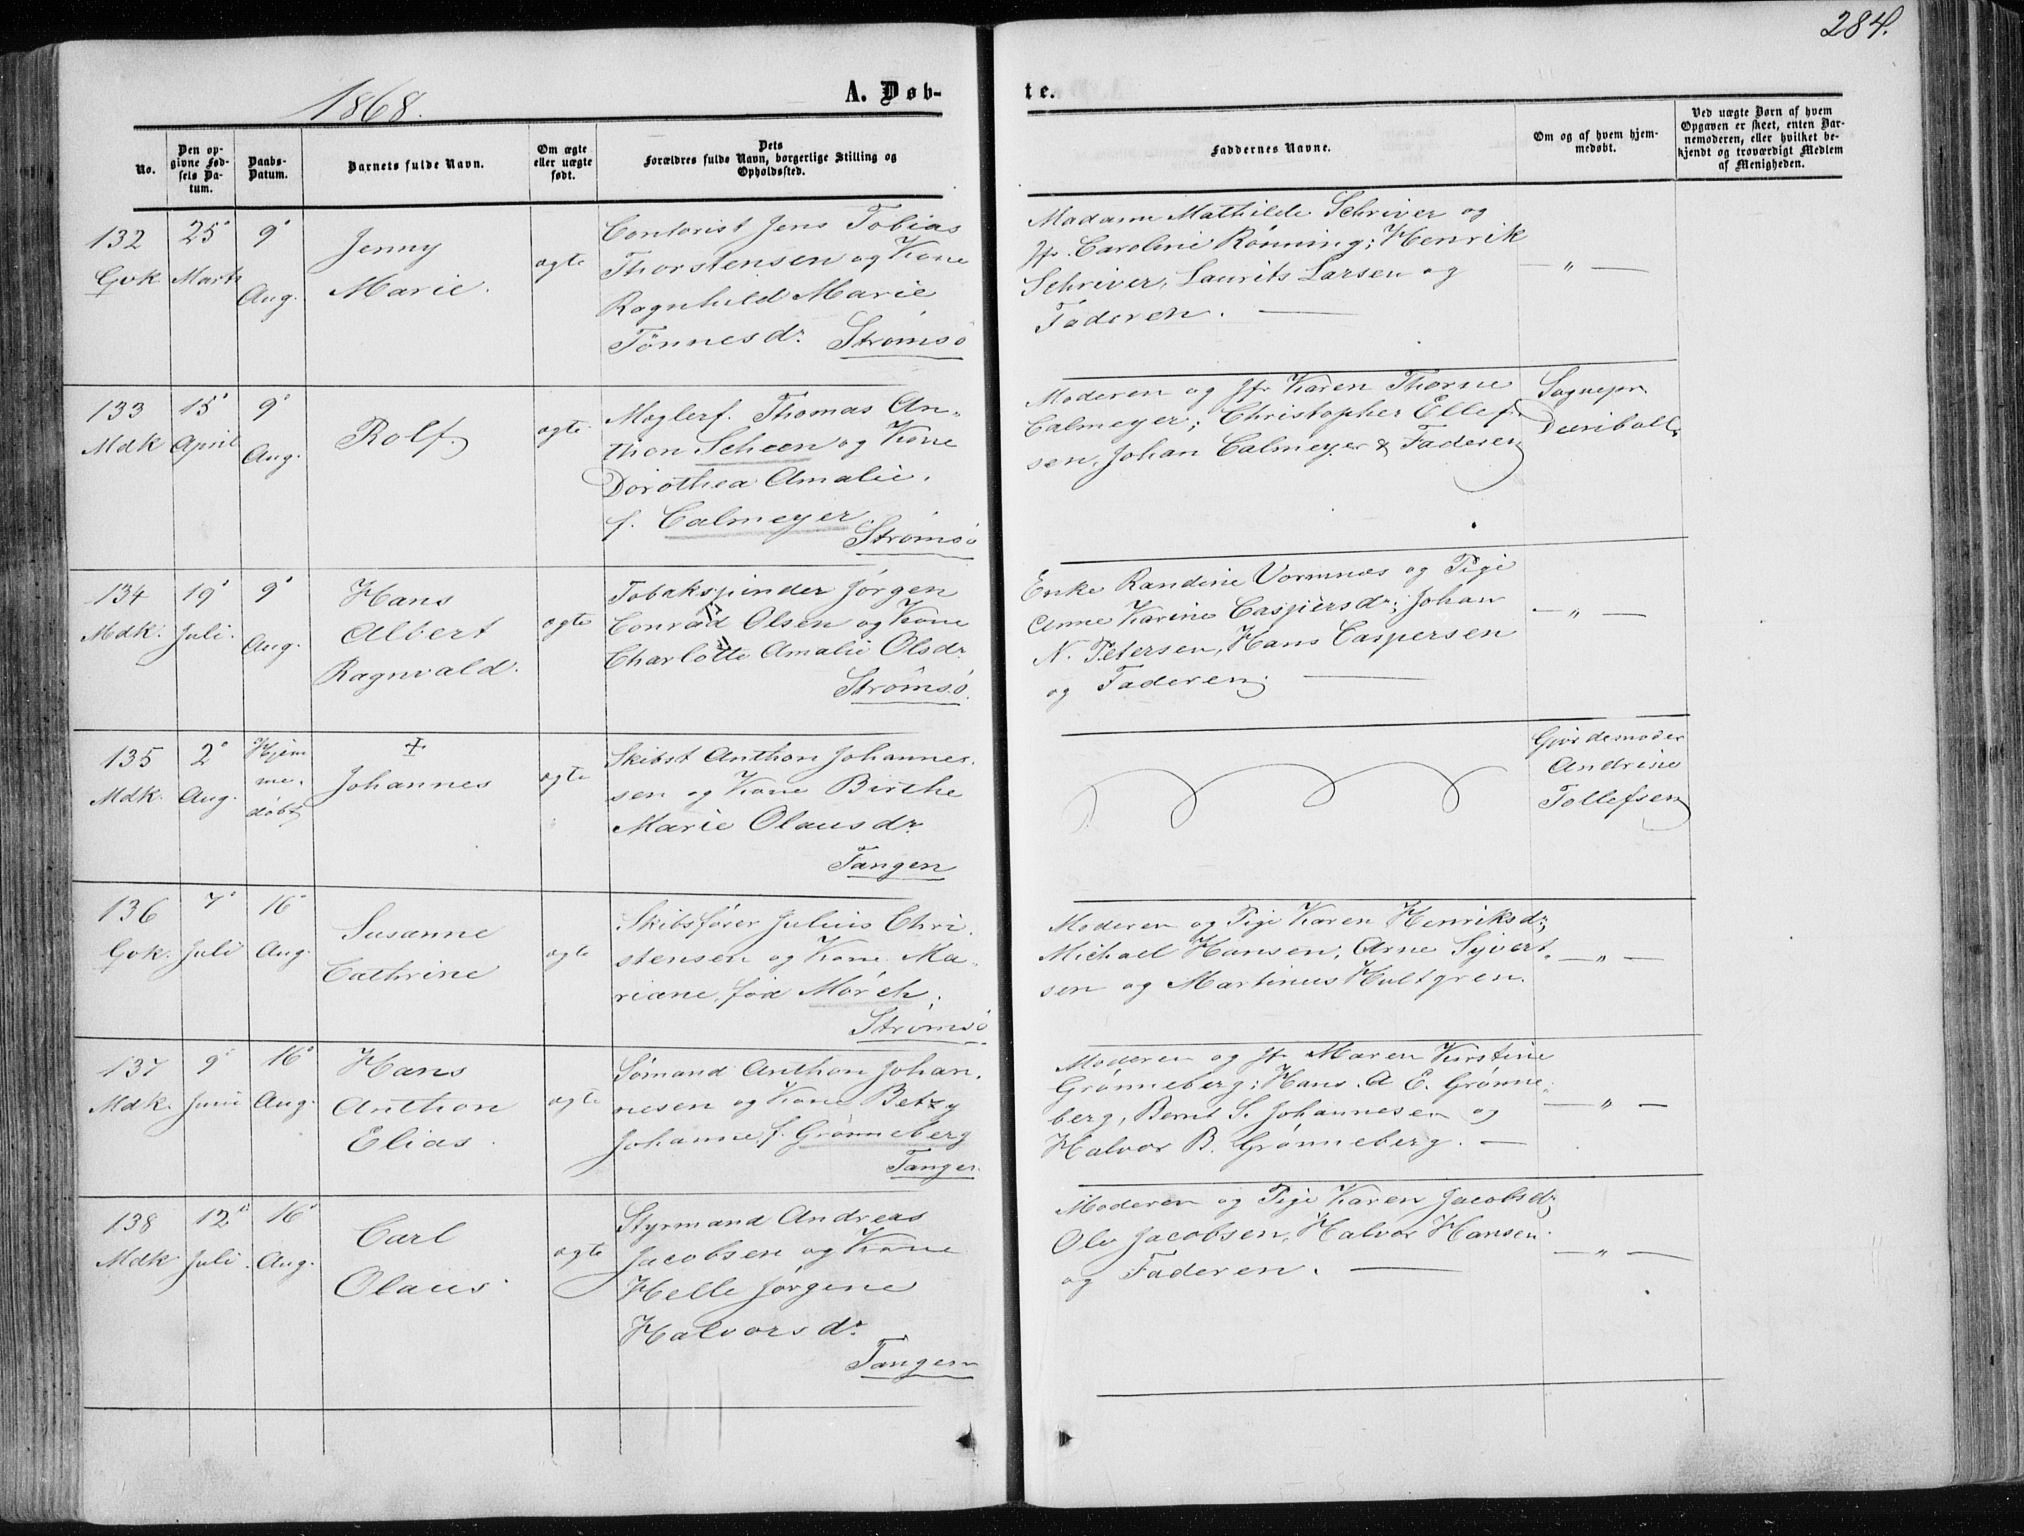 284.
1868.
A. Døb-
te.
No.
Den op-
givne Fød-
sels Da-
tum.
Daabs-
Datum.
Barnets fulde Navn.
Om ægte
eller uægte
født.
Dets
Forældres fulde Navn, borgerlige Stilling og
Opholdssted.
Faddernes Navne.
Om og af hvem hjem-
medøbt.
Ved uægte Børn af hvem
Opgaven er skeet, enten Bar-
nemoderen, eller hvilket be-
kjendt og troværdigt Medlem
af Menigheden.
132
Gvk
25
Marts
9
Aug.
Jenny
Marie.
ægte
Contorist Jens Tobias
Thorstensen og Kone
Ragnhild Marie
Tönnesdr. Strömsö
Madame Mathilde Schriver og
Jfr. Caroline Rönning; Henrik
Schriver, Laurits Larsen og
Faderen. —
— " —
133
Mdk
15
April
9
Aug.
Rolf
ægte
Mæglerf. Thomas An-
thon Scheen og Kone
Dorothea Amalie.
f. Calmeyer
Strömsö
Moderen og Jfr Karen Thorne
Calmeyer; Christopher Ellef-
sen, Johan Calmeyer & Faderen
Sognepr.
134
Mdk.
19
Juli.
9
Aug.
Hans
Albert
Ragnvald.
ægte
Tobakspinder Jörgen
Conrad Olsen og Kone
Charlotte Amalie Olsdr.
Strömsö.
Enke Randine Vormnæs og Pige
Anne Karine Caspersdr; Johan
N. Petersen, Hans Caspersen
og Faderen. —
— " —
135
Mdk.
2
Aug.
Hjem
me-
döbt
+
Johannes
ægte
Skibst Anthon Johannes-
sen og Kone Birthe
Marie Olausdr.
Tangen
Gjordemoder
Andrine
Tollefsen
136
Gvk.
7
Juli
16
Aug.
Susanne
Cathrine
ægte
Skibsförer Julius Chri-
stensen og Kone Ma-
riane, föd Mörch.
Strömsö
Moderen og Pige Karen Henriksdr;
Michael Hansen, Arne Syvert-
sen og Martinus Hultgren.
— " —
137
Mdk.
9
Juni
16
Aug.
Hans
Anthon
Elias.
ægte
Sömand Anthon Johan-
nesen og Kone Betzy
Johanne f. Grönneberg
Tangen.
Moderen og Jfr. Maren Kirstine
Grönneberg; Hans A E. Grönne-
berg, Bernt S. Johannesen og
Halvor B. Grönneberg. —
— " —
138
Mdk
12
Juli.
16
Aug.
Carl
Olaus.
ægte
Styrmand Andreas
Jacobsen og Kone
Helle Jörgine
Halvorsdr.
Tangen
Moderen og Pige Karen Jacobsdr;
Ole Jacobsen, Halvor Hansen
og Faderen. —
— " —